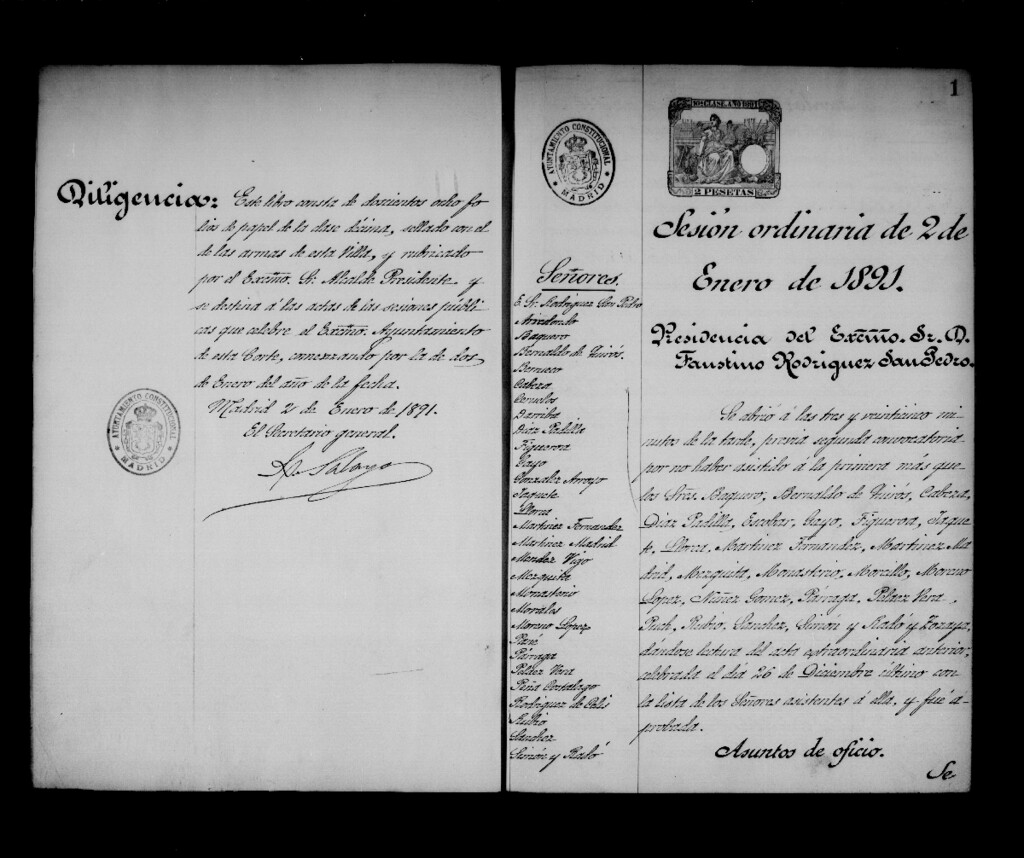 Diligencia: Este libro consta de doscientos ocho fo-
lios de papel de la clase décima, sellado con el
de las armas de esta Villa, y rubricado
por el Excmo. Sr. Alcalde Presidente y
se destina á las actas de las sesiones públi-
cas que celebre el Excmo. Ayuntamiento
de esta Corte, comenzando por la de dos
de Enero del año de la fecha.
Madrid 2 de Enero de 1891.
El Secretario general.
AYUNTAMIENTO CONSTITUCIONAL
MADRID
1
AYUNTAMIENTO CONSTITUCIONAL
MADRID
10ª CLASE AÑO 1891
2 PESETAS
Sesión ordinaria de 2 de
Enero de 1891.
Presidencia del Excmo. Sr. D.
Faustino Rodriguez San Pedro.
Señores.
E. Sr. Rodriguez San Pedro
Arredondo
Baquero
Bernaldo de Quirós
Berrueco
Cabeza
Ceruelos
Barriba
Diaz Padilla
Figueroa
Gayo
Gonzalez Arroyo
Jaquete
Llorca
Martinez Fernandez
Martinez Madrid
Mendez Vigo
Mezquita
Monasterio
Morales
Moreno López
Pané
Párraga
Pelaez Vera
Peña Costalago
Rodriguez de Celis
Rubio
Sanchez
Simón y Radó
Se abrió á las tres y veinticinco mi-
nutos de la tarde, previa segunda convocatoria
por no haber asistido á la primera más que
los Sres. Baquero, Bernaldo de Quirós, Cabeza,
Diaz Padilla, Escobar, Gayo, Figueroa, Jaque-
te, Llorca, Martinez Fernandez, Martinez Ma-
drid, Mezquita, Monasterio, Morcillo, Moreno
Lopez, Nuñez Gomez, Párraga, Pelaez Vera,
Ruch, Rubio, Sanchez, Simón y Radó y Zozaya,
dándose lectura del acta extraordinaria anterior,
celebrada el día 26 de Diciembre último con
la lista de los Señores asistentes á ella, y fué a-
probada.
Asuntos de oficio.
Se